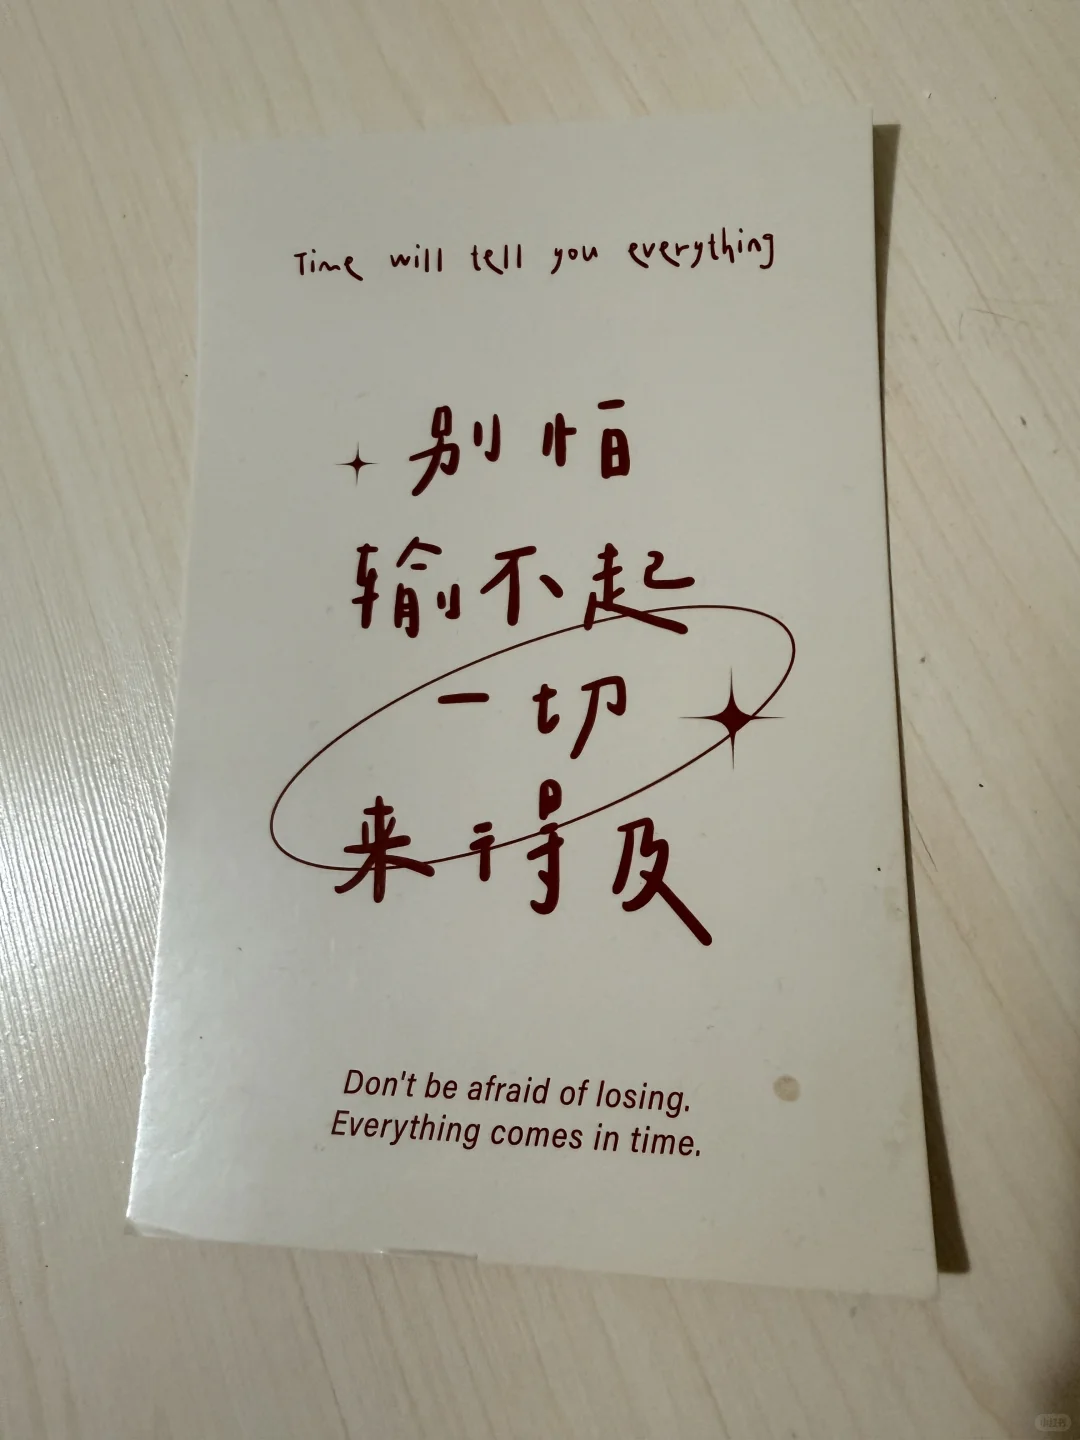 Time will tell you everything
别怕
输不起
一切
来得及
Don't be afraid of losing.
Everything comes in time.
小红书